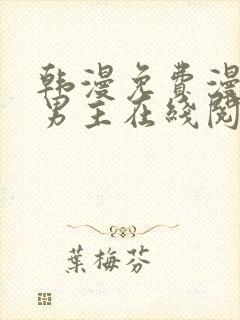 韩漫免費漫
男主在綫閱
葉梅芬